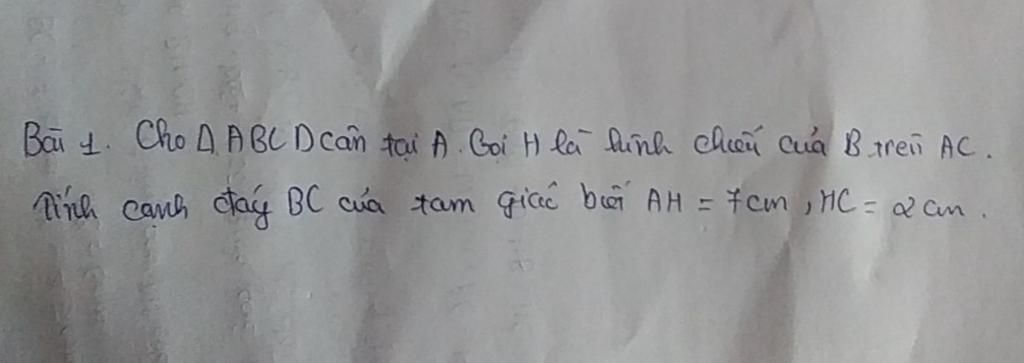 Bài 1. Cho Δ ABCD cân tại A. Gọi H là hình chiếu của B trên AC.
Tính cạnh đáy BC của tam giác biết AH = 7cm, HC = 2cm.